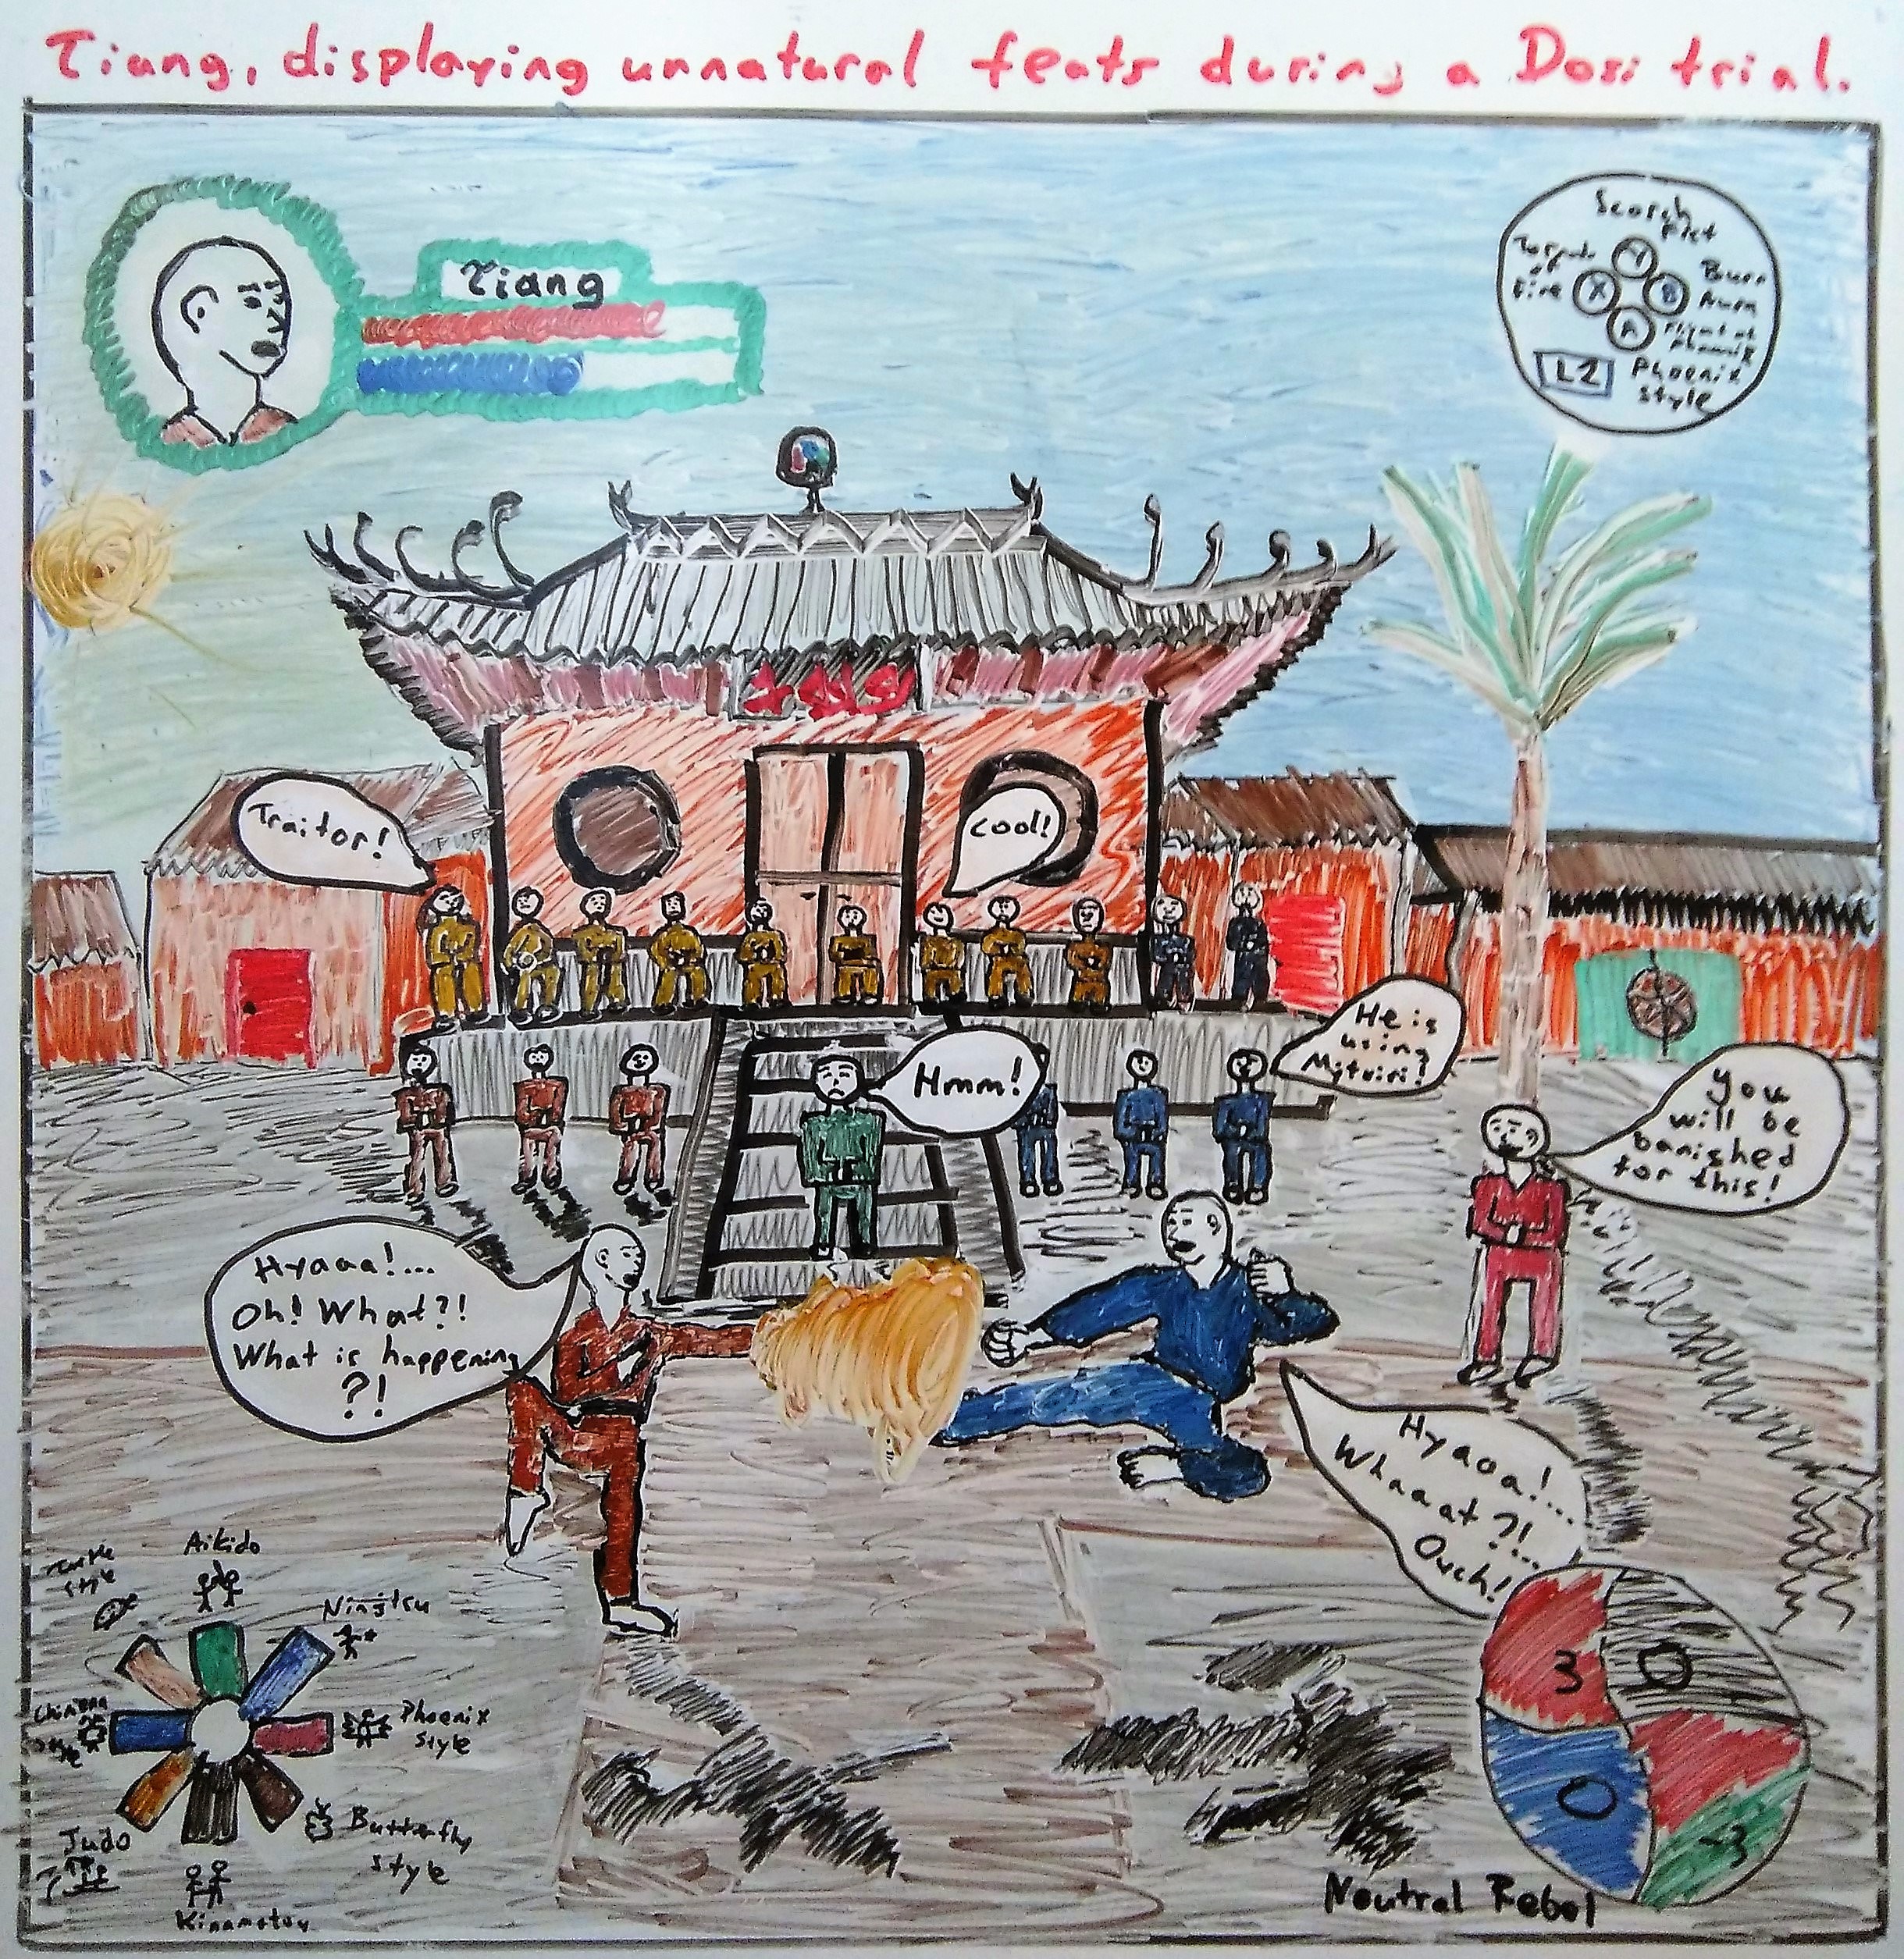 Tiang, displaying unnatural feats during a Dosi trial.
Tiang
Scorch
Fist
Y
X
B
Burn
Aura
of
Fire
A
Flight of
Phoenix
L2
Phoenix
style
Traitor!
Cool!
He is
using
Mytviri!
Hmm!
You
will be
banished
for this!
Hyaaa!...
Oh! What?!
What is happening
?!
Hyaoa!...
Whaaat?!...
Ouch!
Turtle
style
Aikido
Ninjtsu
Phoenix
style
Butterfly
style
Judo
3
0
0
-3
Neutral Rebel